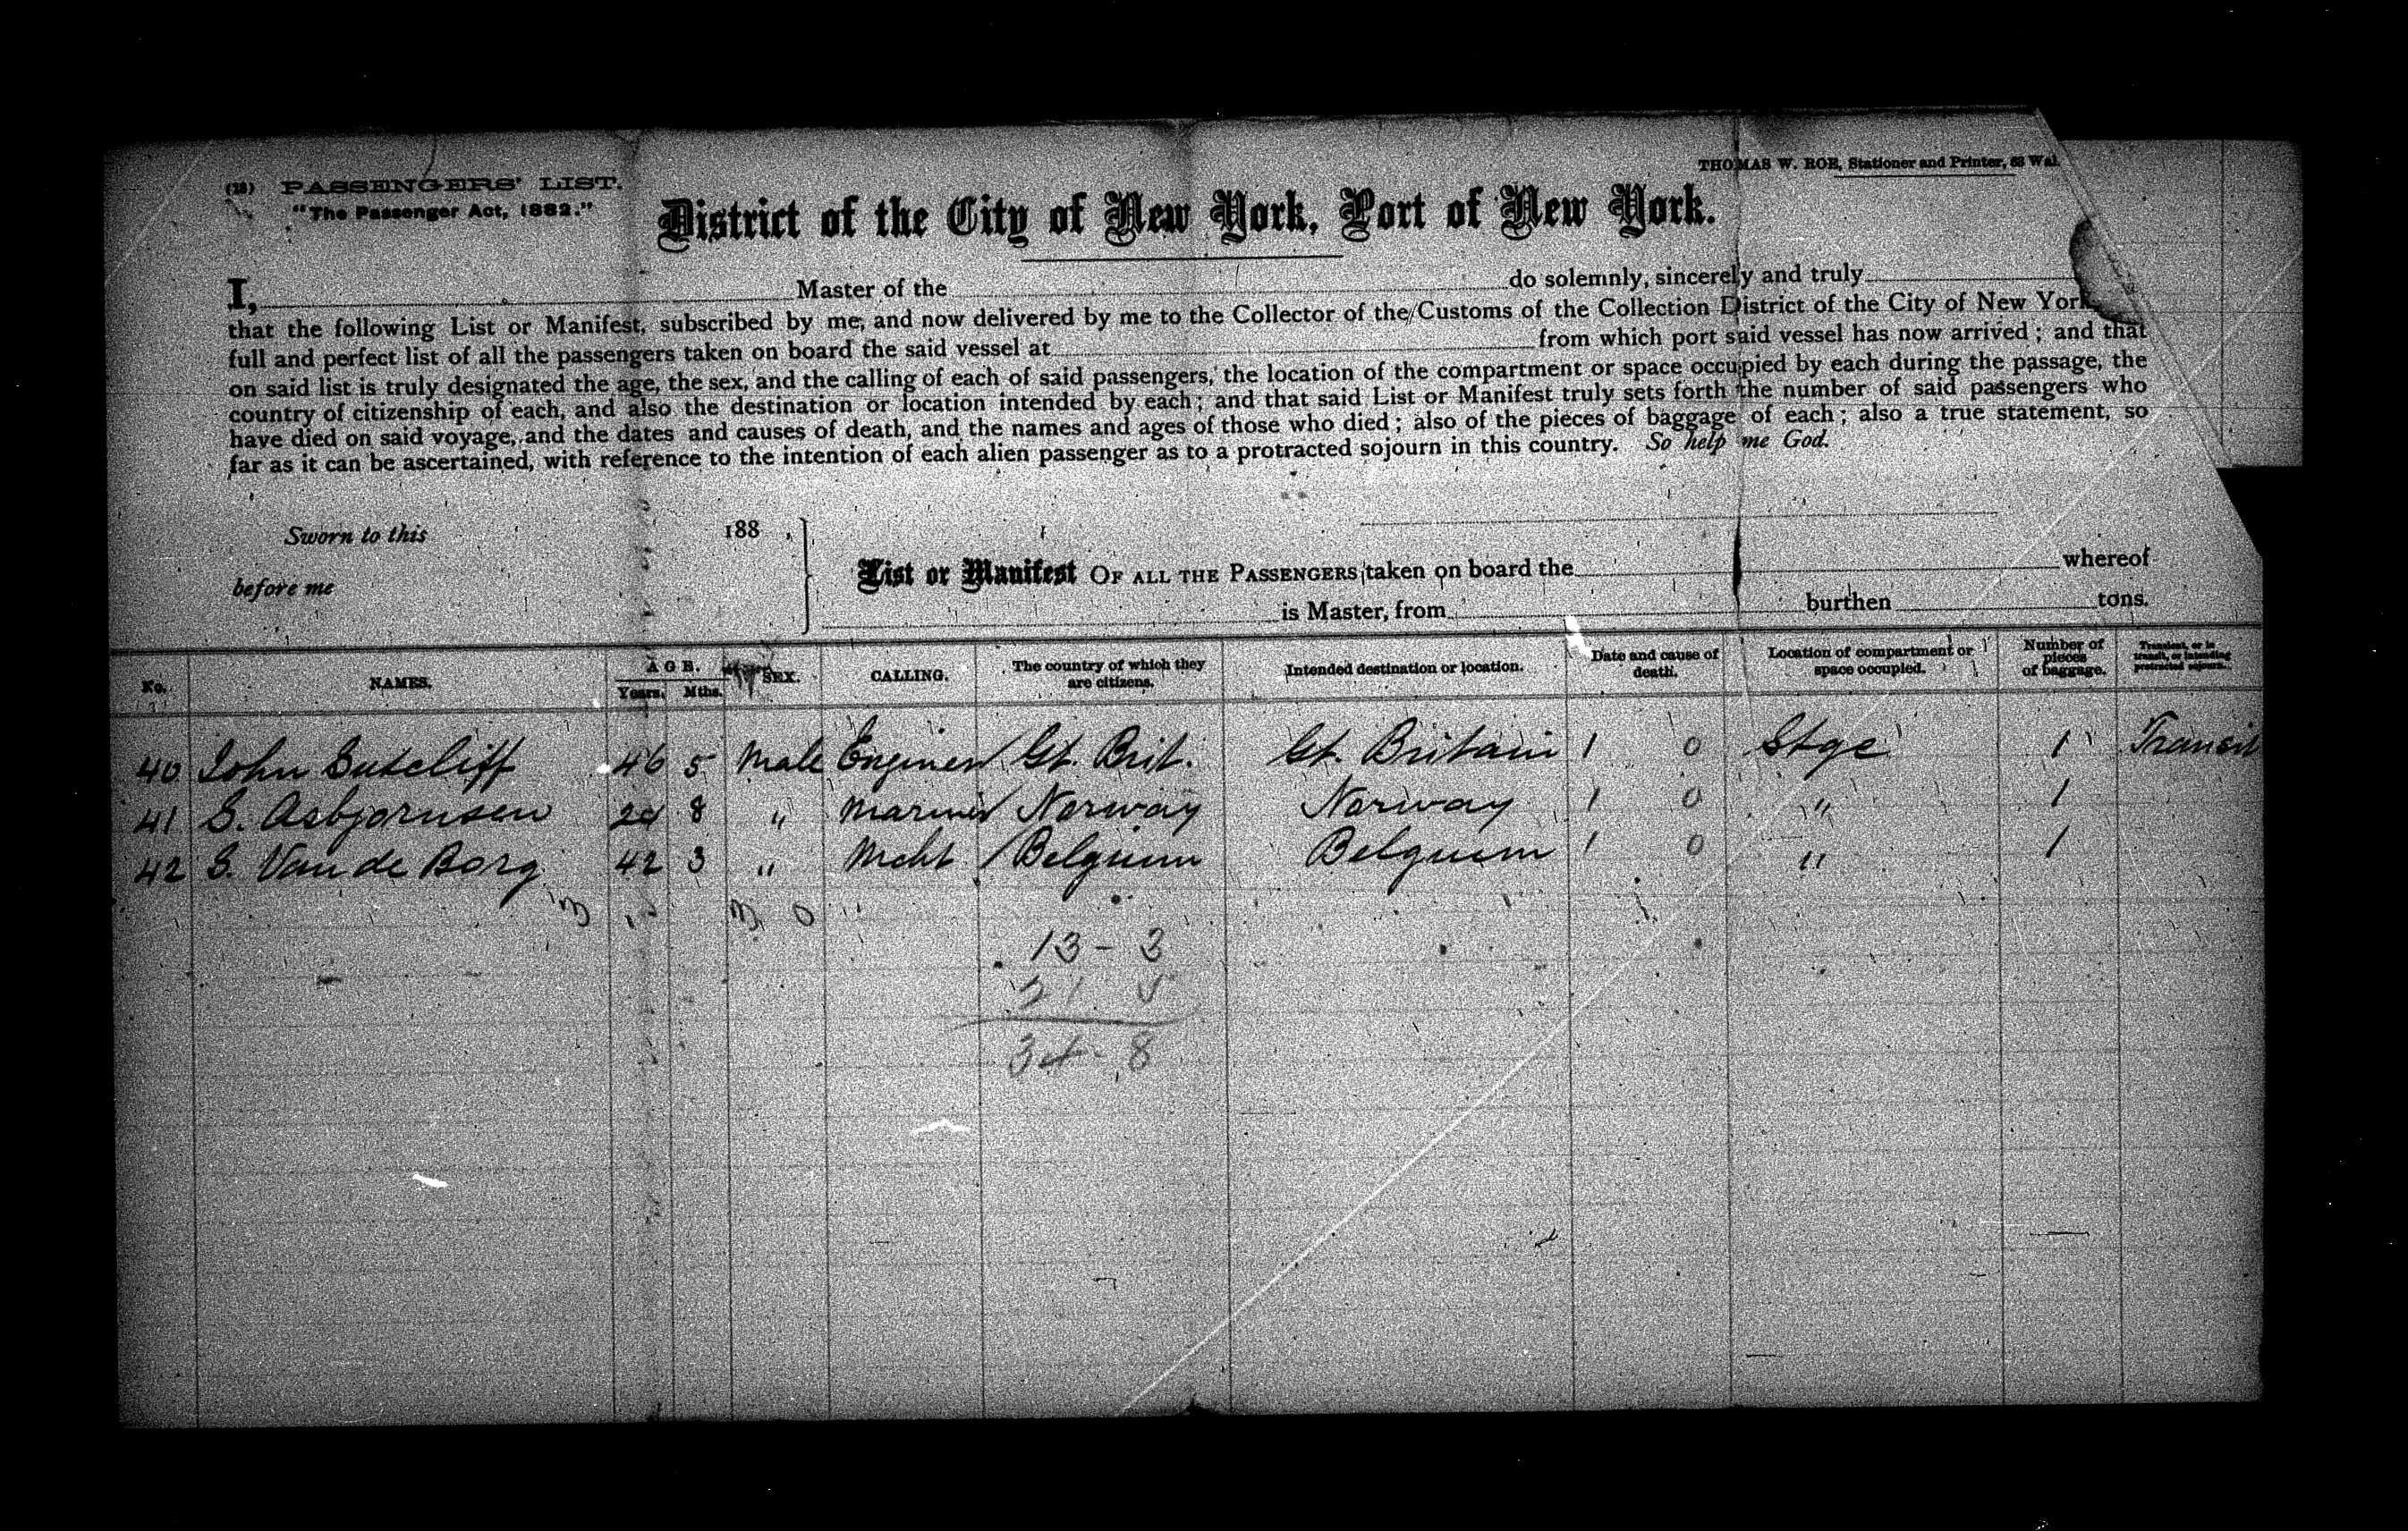 THOMAS W. ROE, Stationer and Printer, 58 Wal
(18) PASSENGERS' LIST.
"The Passenger Act, 1882."
District of the City of New York, Port of New York.
I, Master of the do solemnly, sincerely and truly
that the following List or Manifest, subscribed by me, and now delivered by me to the Collector of the Customs of the Collection District of the City of New York
full and perfect list of all the passengers taken on board the said vessel at from which port said vessel has now arrived; and that
on said list is truly designated the age, the sex, and the calling of each of said passengers, the location of the compartment or space occupied by each during the passage, the
country of citizenship of each, and also the destination or location intended by each; and that said List or Manifest truly sets forth the number of said passengers who
have died on said voyage, and the dates and causes of death, and the names and ages of those who died; also of the pieces of baggage of each; also a true statement, so
far as it can be ascertained, with reference to the intention of each alien passenger as to a protracted sojourn in this country. So help me God.
Sworn to this 188 ,
before me
List or Manifest OF ALL THE PASSENGERS taken on board the whereof
is Master, from burthen tons.
No. NAMES. AGE. Years. Mths. SEX. CALLING. The country of which they are citizens. Intended destination or location. Date and cause of death. Location of compartment or space occupied. Number of pieces of baggage. Transient, or in transit, or intending protracted sojourn.
40 John Sutcliff 46 5 Male Engineer Gt. Brit. Gt. Britain 1 0 Stge 1 Transit
41 S. Asbjornsen 8 " Mariner Norway Norway 1 0 " 1
42 S. Van de Borg 42 3 " Mcht Belgium Belguem 1 0 " 1
13 - 3
21 5
34 - 8